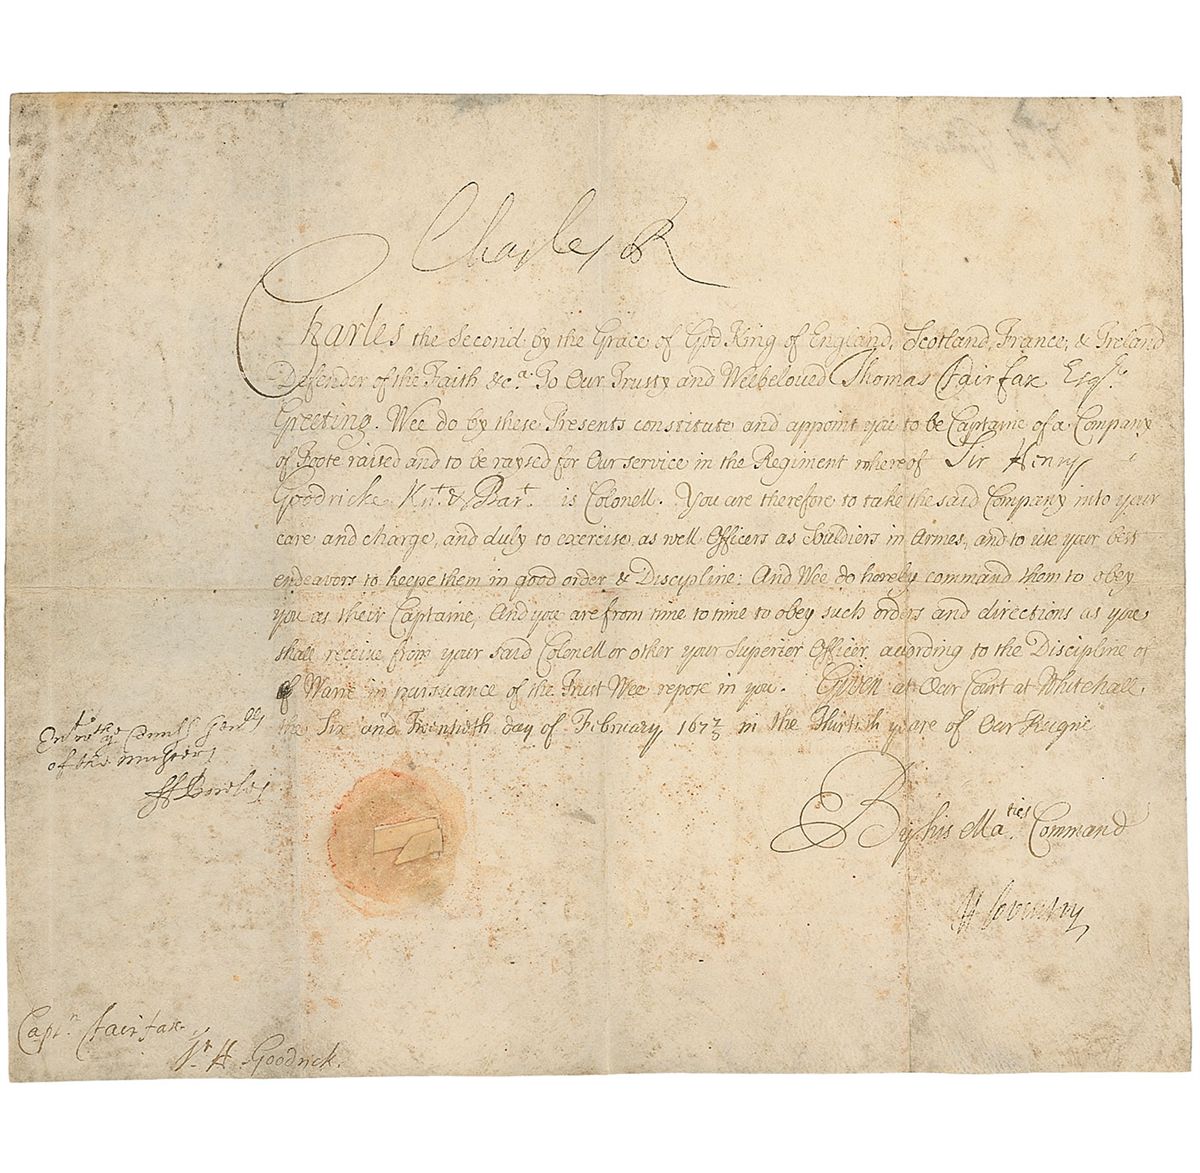 Charles R
Charles the Second by the Grace of God King of England, Scotland, France, & Ireland
Defender of the Faith &c.a To Our Trusty and Welbeloved Thomas Fairfax Esq.r
Greeting. Wee do by these Presents constitute and appoint you to be Captaine of a Company
of Foote raised and to be raysed for Our service in the Regiment whereof Sir Henry
Goodricke Kn.t & Bar.t is Colonell. You are therefore to take the said Company into your
care and charge, and duly to exercise as well Officers as Souldiers in Armes, and to use your best
endeavors to keepe them in good order & Discipline: And Wee do hereby command them to obey
you as their Captaine, And you are from time to time to obey such orders and directions as you
shall receive from your said Colonell or other your Superior Officer, according to the Discipline of
of Warre in pursuance of the Trust Wee repose in you. Given at Our Court at Whitehall,
the Six and Twentieth day of February 1677/8 in the Thirtieth yeare of Our Reigne
of the musters
By his Ma.ties Command
H Coventry
Capt.n Fairfax
S.r H. Goodrick.